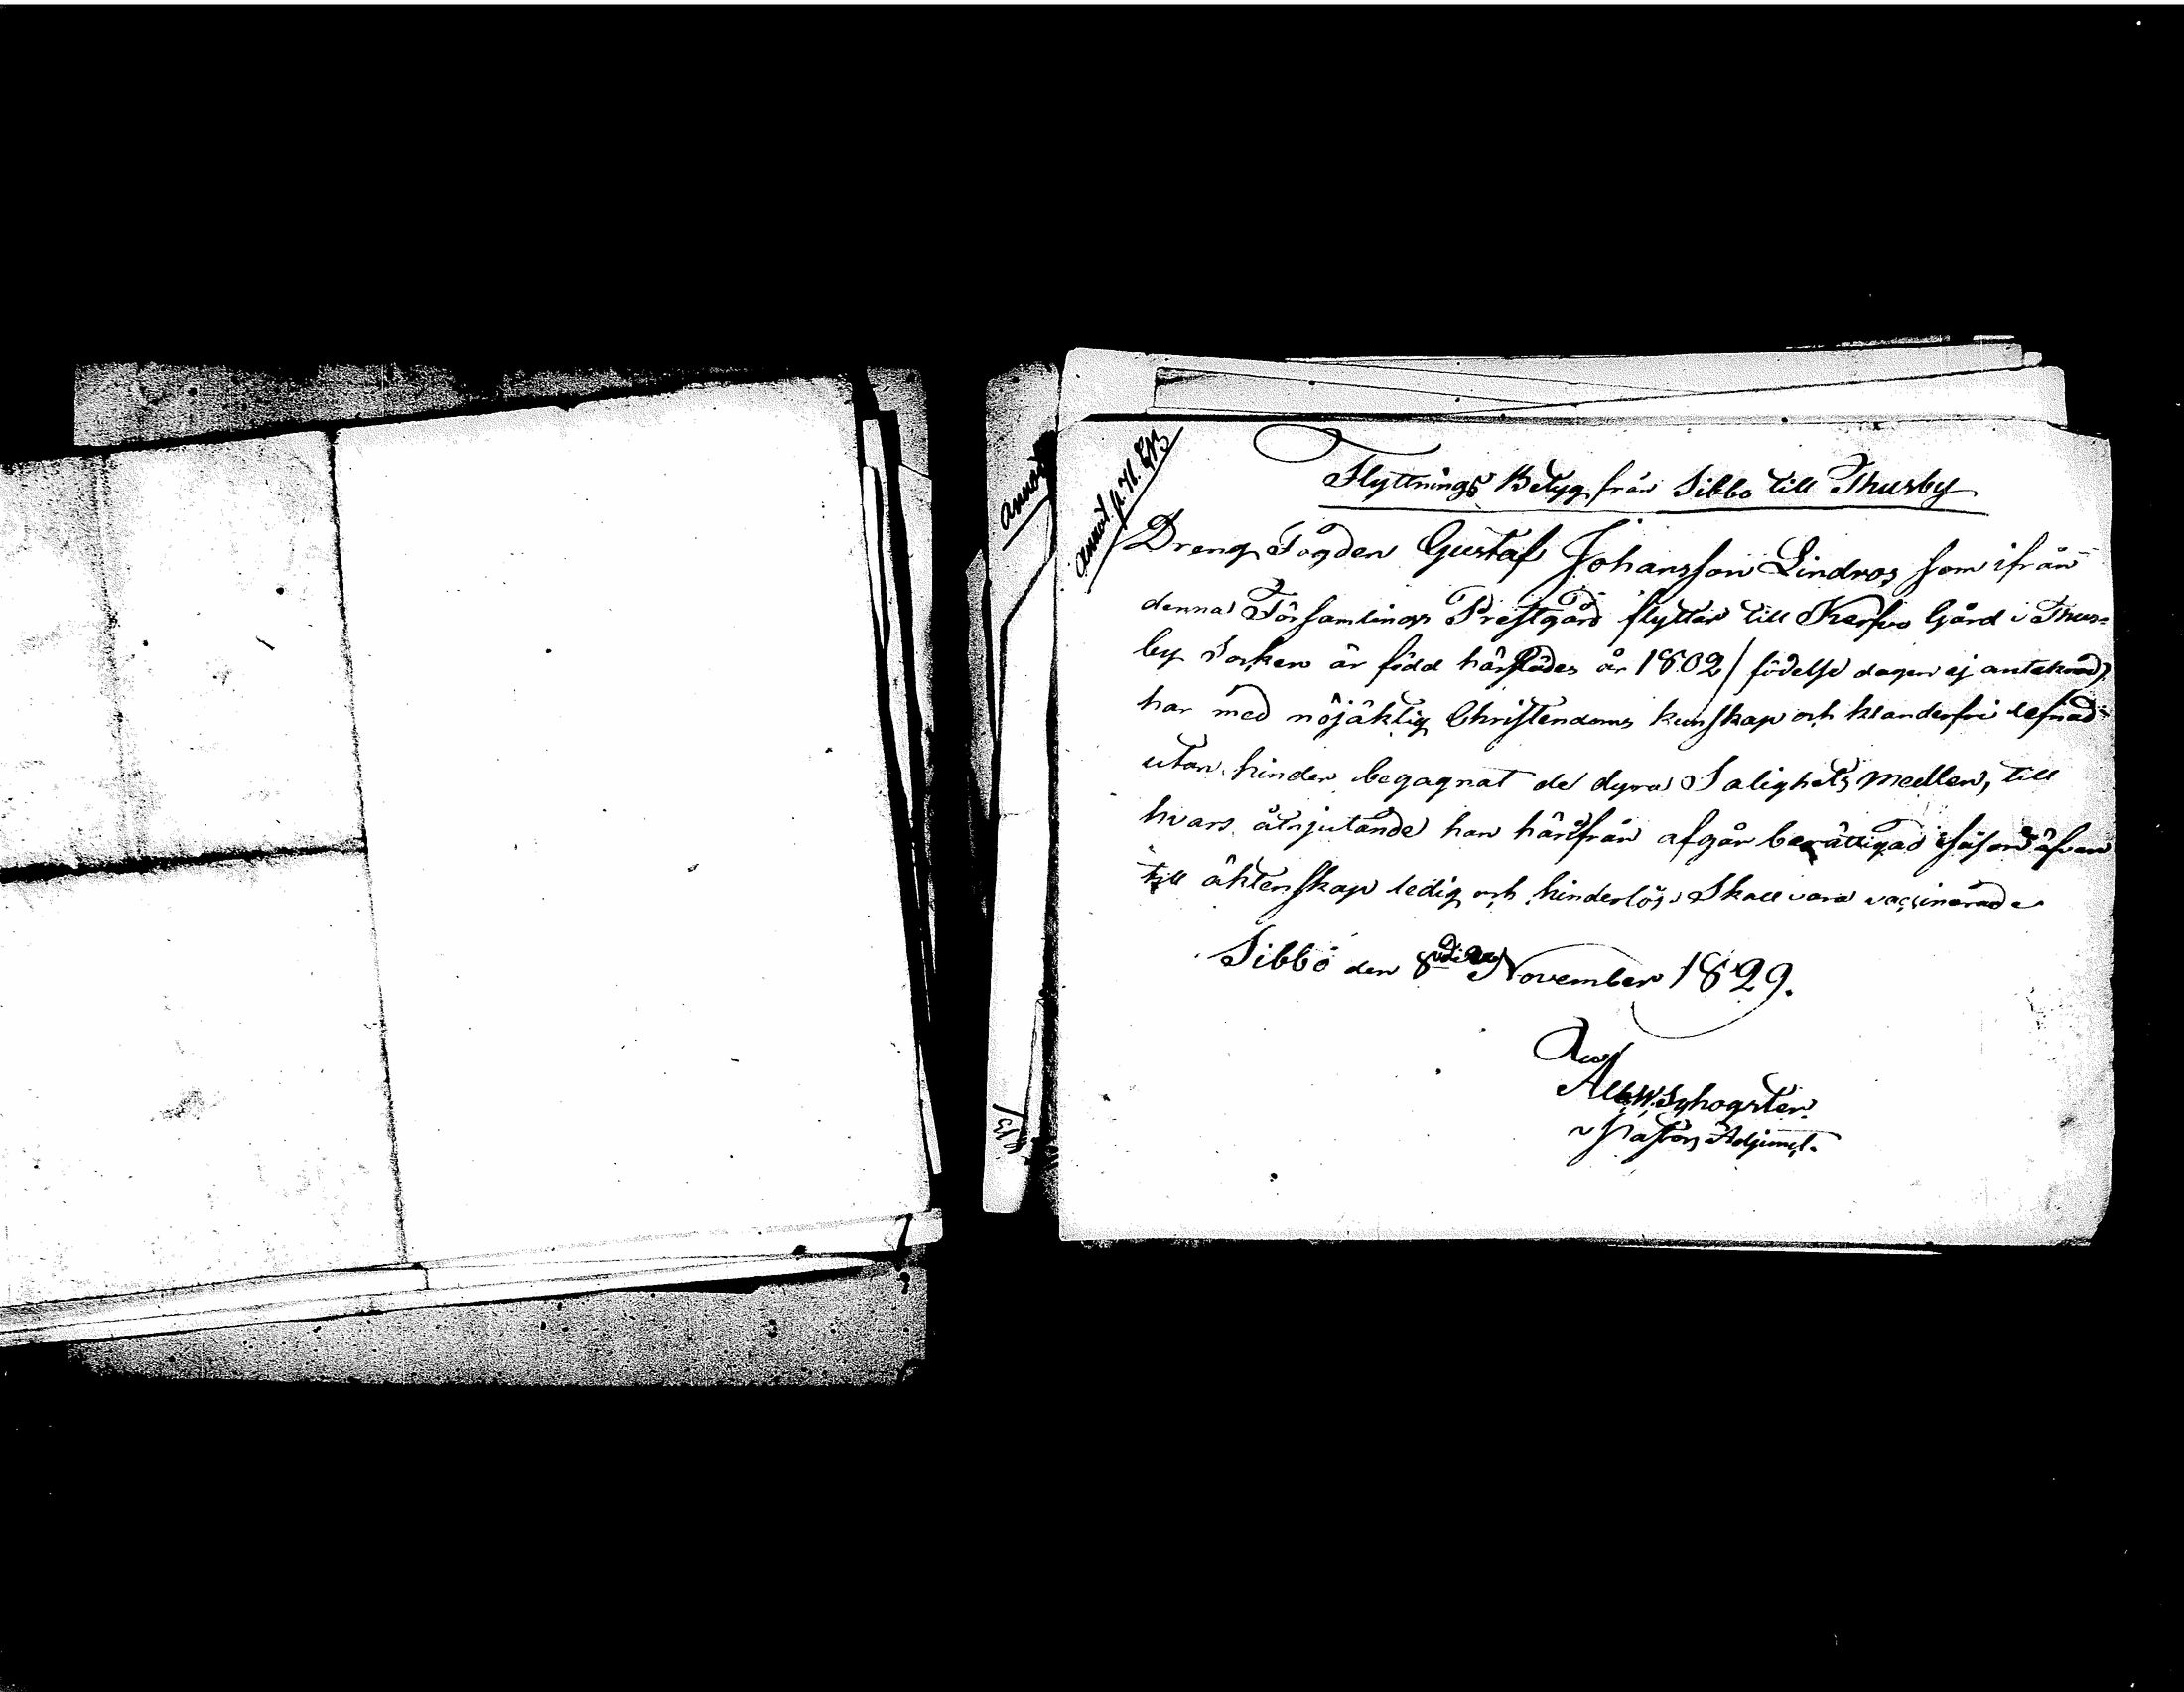 annot
annot. p. 71.
Flyttnings Betyg från Sibbo till Thusby
Dreng Fogden Gustaf Johansson Lindros som ifrån
denna Församlings Prestgård flyttar till Kerfvo Gård i Thus=
by Socken är född härstädes år 1802 / födelse dagen ej anteknad),
har med nöjäktig Christendoms kunskap och klanderfri lefnad
utan hinder begagnat de dyra Salighets medlen, till
hvars åtnjutande han härifrån afgår berättigad såsom äfven
till äktenskap ledig och hinderlös. Skall vara vaccinerad
Sibbo den 8 November 1829.
Pastors Adjunct.